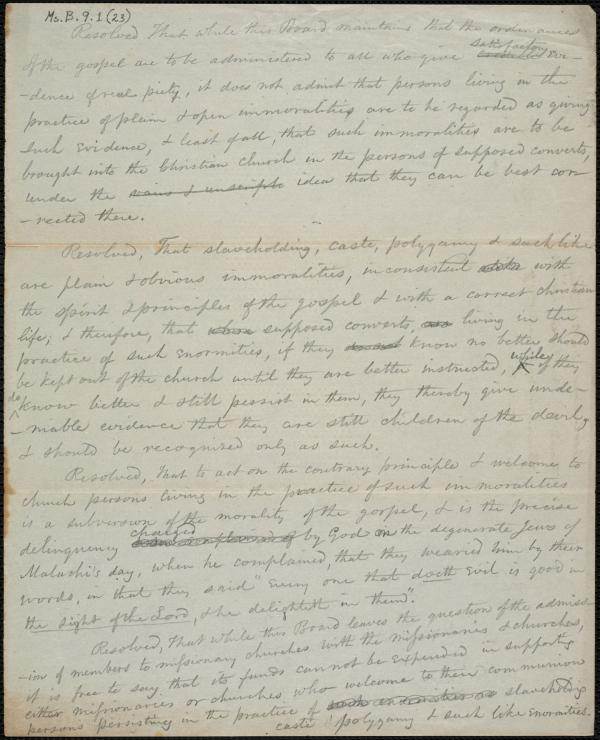 Ms. B. 9. 1 (23)
Resolved, That while this Board maintains that the ordinances
of the gospel are to be administered to all who give satisfactory evi-
-dence of real piety, it does not admit that persons living in the
practice of plain & open immoralities are to be regarded as giving
such evidence, & least of all, that such immoralities are to be
brought into the Christian church in the persons of supposed converts,
under the vain & unscriptu idea that they can be best cor-
-rected there.
Resolved, That slaveholding, caste, polygamy & such like
are plain & obvious immoralities, inconsistent with
the spirit & principles of the gospel & with a correct christian
life; & therefore, that supposed converts, living in the
practice of such enormities, if they know no better should
be kept out of the church until they are better instructed, while if they
do know better & still persist in them, they thereby give unde-
-niable evidence that they are still children of the devil,
& should be recognised only as such.
Resolved, That to act on the contrary principle & welcome to
church persons living in the practice of such immoralities
is a subversion of the morality of the gospel, & is the precise
delinquency charged by God on the degenerate Jews of
Malachi's day, when he complained, that they wearied him by their
words, in that they said "Every one that doeth evil is good in
the sight of the Lord, & he delighteth in them".
Resolved, That while this Board leaves the question of the admiss-
-ion of members to missionary churches with the missionaries & churches,
it is free to say that its funds cannot be expended in supporting
either missionaries or churches who welcome to their communion
persons persisting in the practice of slaveholding
caste polygamy & such like enormities.